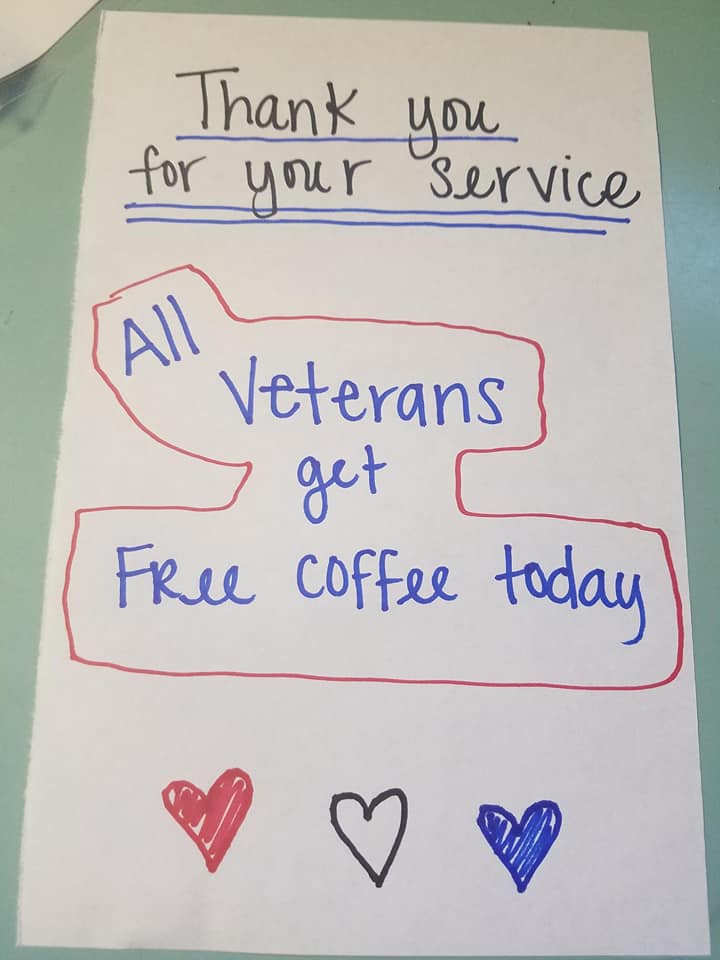 Thank you
for your service
All
Veterans
get
Free coffee today